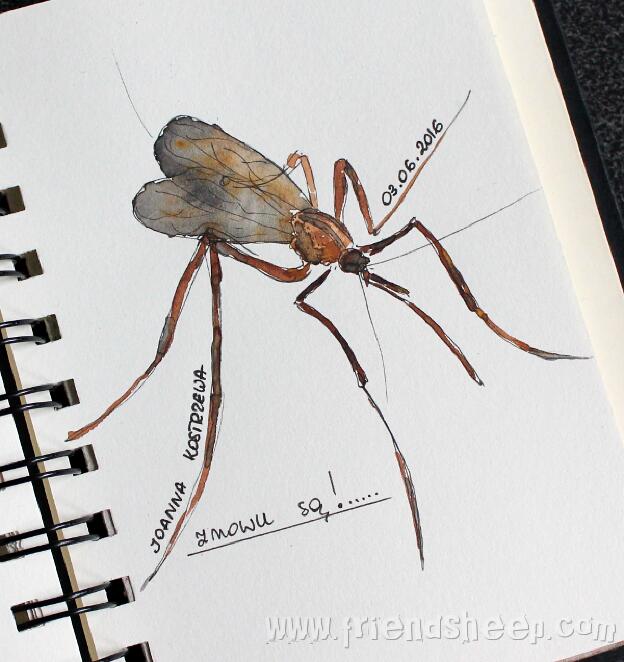 03.06.2016
JOANNA KOSTRZEWA
znowu są!......
www.friendsheep.com